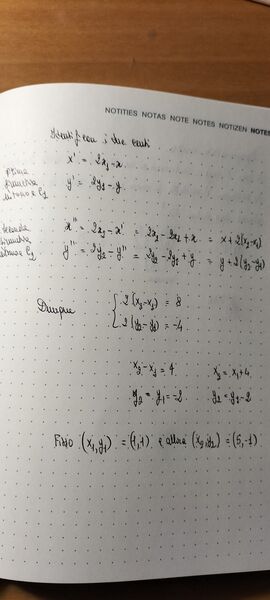 NOTITIES NOTAS NOTE NOTES NOTIZEN NOTES
i due centri
x' = 2x₁ - x
prima simmetria intorno a C₁
y' = 2y₁ - y
seconda simmetria intorno a C₂
x'' = 2x₂ - x' = 2x₂ - 2x₁ + x = x + 2(x₂-x₁)
y'' = 2y₂ - y'' = 2y₂ - 2y₁ + y = y + 2(y₂-y₁)
Dunque
{ 2(x₂-x₁) = 8
2(y₂-y₁) = -4
x₂-x₁ = 4 x₂ = x₁+4
y₂ = y₁ = -2 y₂ = y₁-2
Fisso (x₁,y₁) = (1,1) e allora (x₂,y₂) = (5,-1)